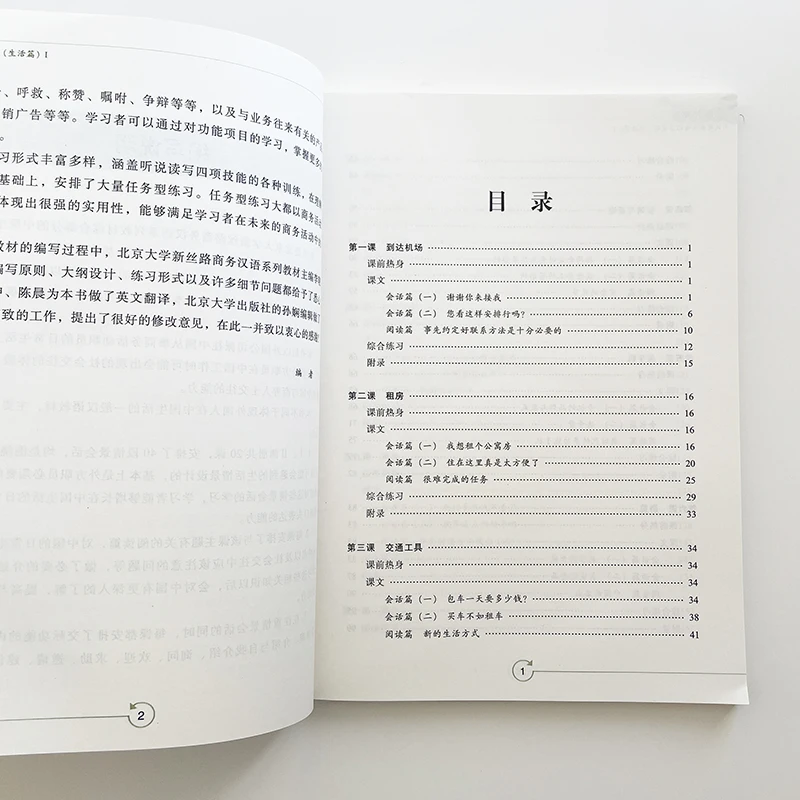 （生活篇）I
、呼救、称赞、嘱咐、争辩等等，以及与业务往来有关的产
销广告等等。学习者可以通过对功能项目的学习，掌握更多
。
习形式丰富多样，涵盖听说读写四项技能的各种训练，在
基础上，安排了大量任务型练习。任务型练习大都以商务活
体现出很强的实用性，能够满足学习者在未来的商务活动中
教材的编写过程中，北京大学新丝路商务汉语系列教材主编李
编写原则、大纲设计、练习形式以及许多细节问题都给予了悉
、陈晨为本书做了英文翻译，北京大学出版社的孙娴编辑做了
致的工作，提出了很好的修改意见，在此一并致以衷心的感
编 者
2
目 录
第一课 到达机场 1
课前热身 1
课文 1
会话篇（一） 谢谢你来接我 1
会话篇（二） 您看这样安排行吗？ 6
阅读篇 事先约定好联系方法是十分必要的 10
综合练习 12
附录 15
第二课 租房 16
课前热身 16
课文 16
会话篇（一） 我想租个公寓房 16
会话篇（二） 住在这里真是太方便了 20
阅读篇 很难完成的任务 25
综合练习 29
附录 33
第三课 交通工具 34
课前热身 34
课文 34
会话篇（一） 包车一天要多少钱？ 34
会话篇（二） 买车不如租车 38
阅读篇 新的生活方式 41
1